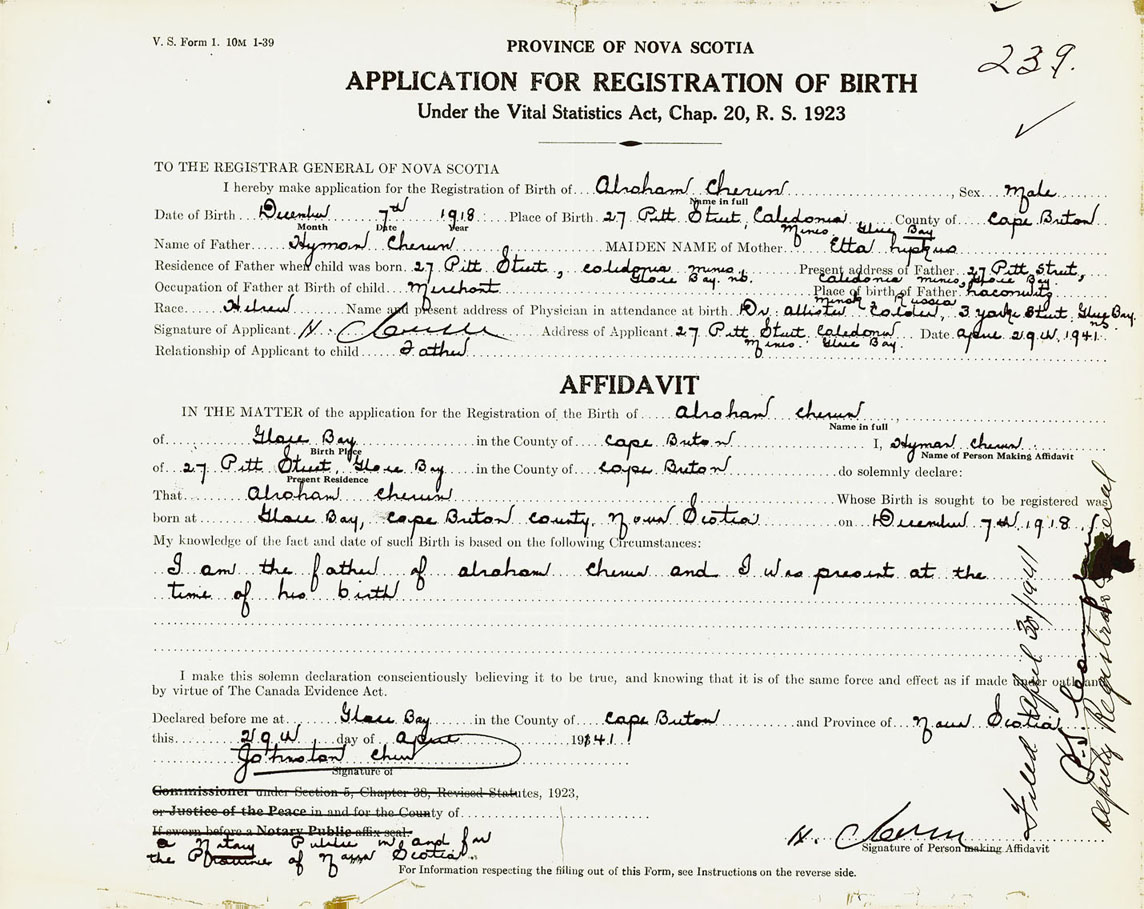 V. S. Form 1. 10M 1-39
PROVINCE OF NOVA SCOTIA
239.
APPLICATION FOR REGISTRATION OF BIRTH
Under the Vital Statistics Act, Chap. 20, R. S. 1923
TO THE REGISTRAR GENERAL OF NOVA SCOTIA
I hereby make application for the Registration of Birth of Abraham Cherun, Sex Male
Name in full
Date of Birth December 7th 1918 Place of Birth 27 Pitt Street, Caledonia Mines Glace Bay County of Cape Breton
Month Date Year
Name of Father Hyman Cherun MAIDEN NAME of Mother Etta
Residence of Father when child was born 27 Pitt Street, Caledonia Mines, Glace Bay. N.S. Present address of Father 27 Pitt Street, Caledonia Mines, Glace Bay.
Occupation of Father at Birth of child Merchant Place of birth of father Minsk, Russia
Race Hebrew Name and present address of Physician in attendance at birth Dr. Allister Calder, 3 Yorke Street Glace Bay. N.S.
Signature of Applicant H. Address of Applicant 27 Pitt Street Caledonia Mines. Glace Bay. Date April 29th, 1941
Relationship of Applicant to child Father
AFFIDAVIT
IN THE MATTER of the application for the Registration of the Birth of Abraham Cherun
Name in full
of Glace Bay in the County of Cape Breton I, Hyman Cherun
Birth Place Name of Person Making Affidavit
of 27 Pitt Street, Glace Bay in the County of Cape Breton do solemnly declare:
Present Residence
That Abraham Cherun Whose Birth is sought to be registered was
born at Glace Bay, Cape Breton County, Nova Scotia on December 7th 1918
My knowledge of the fact and date of such Birth is based on the following Circumstances:
I am the father of Abraham Cherun and I was present at the
time of his birth
I make this solemn declaration conscientiously believing it to be true, and knowing that it is of the same force and effect as if made under oath and
by virtue of The Canada Evidence Act.
Declared before me at Glace Bay in the County of Cape Breton and Province of Nova Scotia
this 29th day of April 1941
Johnston
Signature of
Commissioner under Section 5, Chapter 38, Revised Statutes, 1923,
or Justice of the Peace in and for the County of
If sworn before a Notary Public affix seal.
a Notary Public in and for
the Province of Nova Scotia
H.
Signature of Person making Affidavit
For Information respecting the filling out of this Form, see Instructions on the reverse side.
Filed April 30/1941
Deputy Registrar General